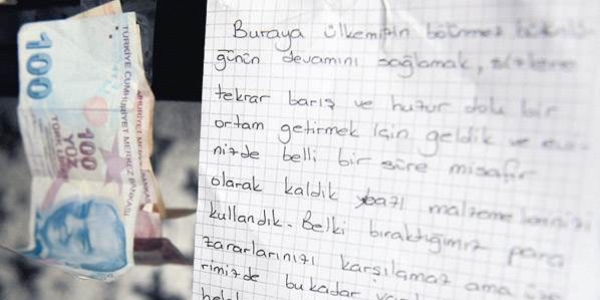 100
TÜRKİYE CUMHURİYET MERKEZ BANKASI
100
YÜZ
TÜRK LİRASI
Buraya ülkemizin bölünmez bütünlü
ğünün devamını sağlamak, sizlere
tekrar barış ve huzur dolu bir
ortam getirmek için geldik ve evi
nizde belli bir süre misafir
olarak kaldık bazı malzemelerinizi
kullandık. Belki bıraktığımız para
zararlarınızı karşılamaz ama
rimizde bu kadar